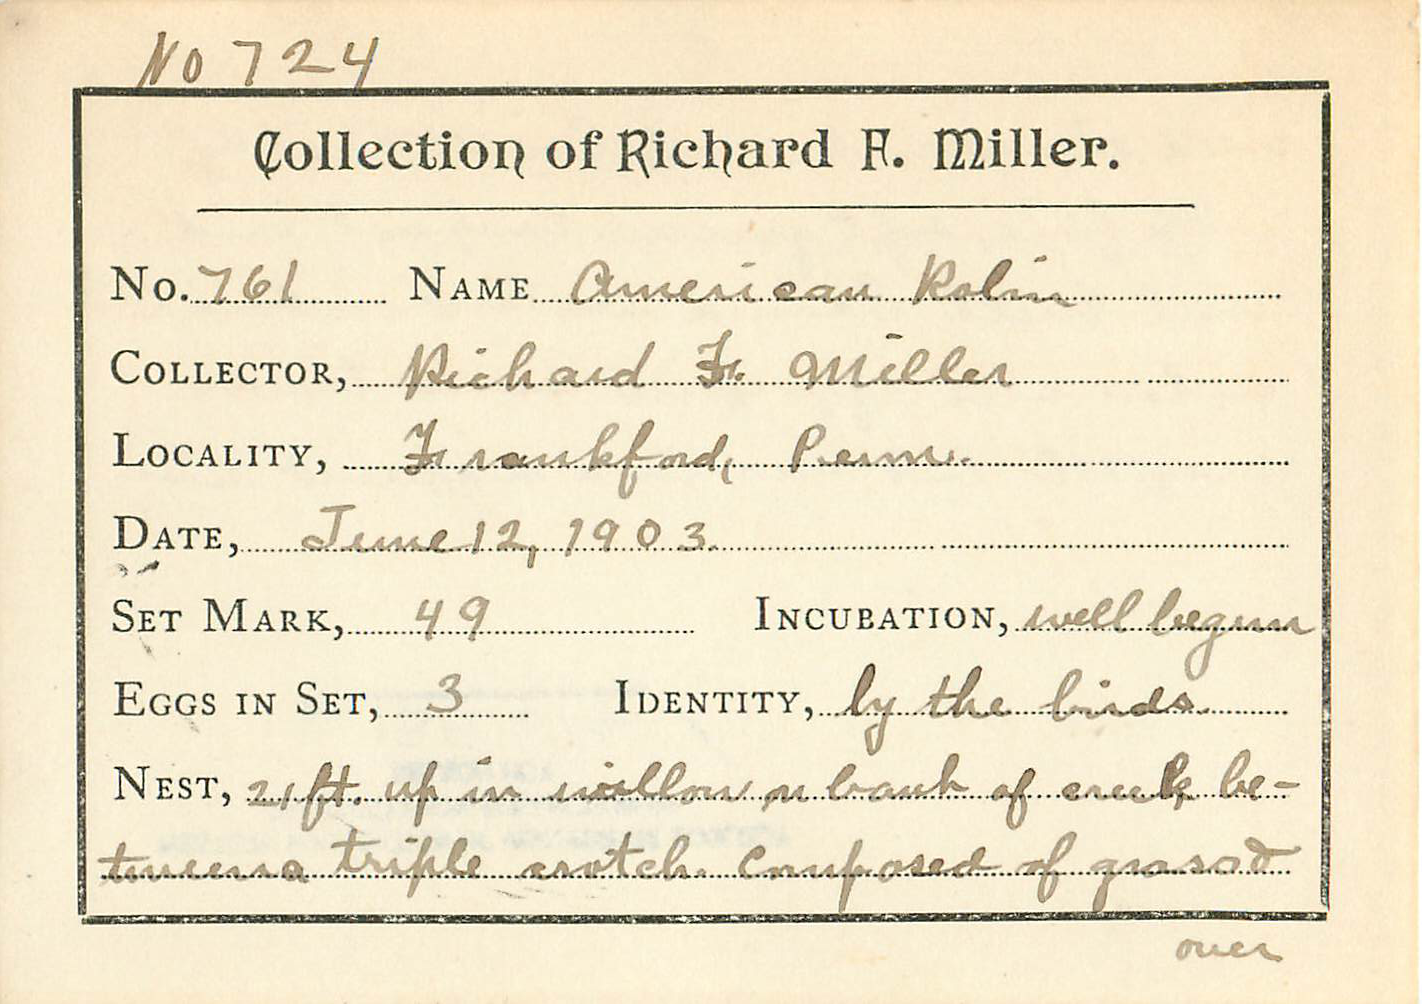 No 724
Collection of Richard F. Miller.
No. 761 NAME American Robin
COLLECTOR, Richard F. Miller
LOCALITY, Frankford, Penn.
DATE, June 12, 1903.
SET MARK, 49 INCUBATION, well begun
EGGS IN SET, 3 IDENTITY, by the birds.
NEST, 21 ft. up in willow n bank of creek be-
tween a triple crotch. Composed of grass
over